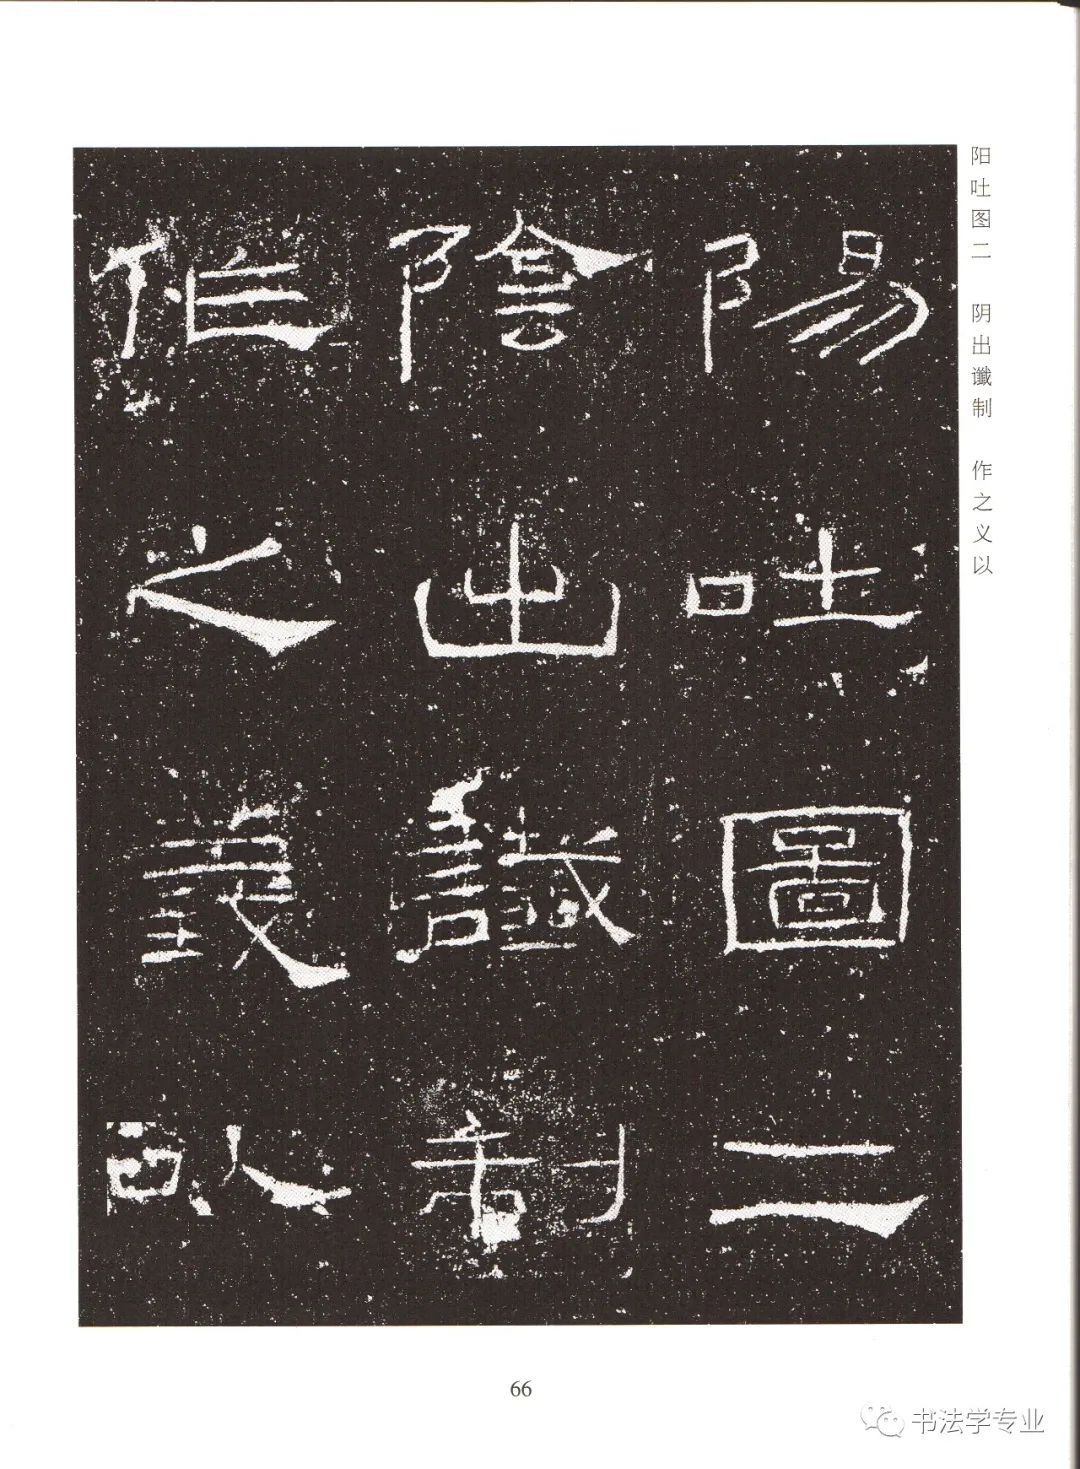 陽吐圖二
陰出讖制
作之義以
阳吐图二 阴出谶制 作之义以
66
书法学专业